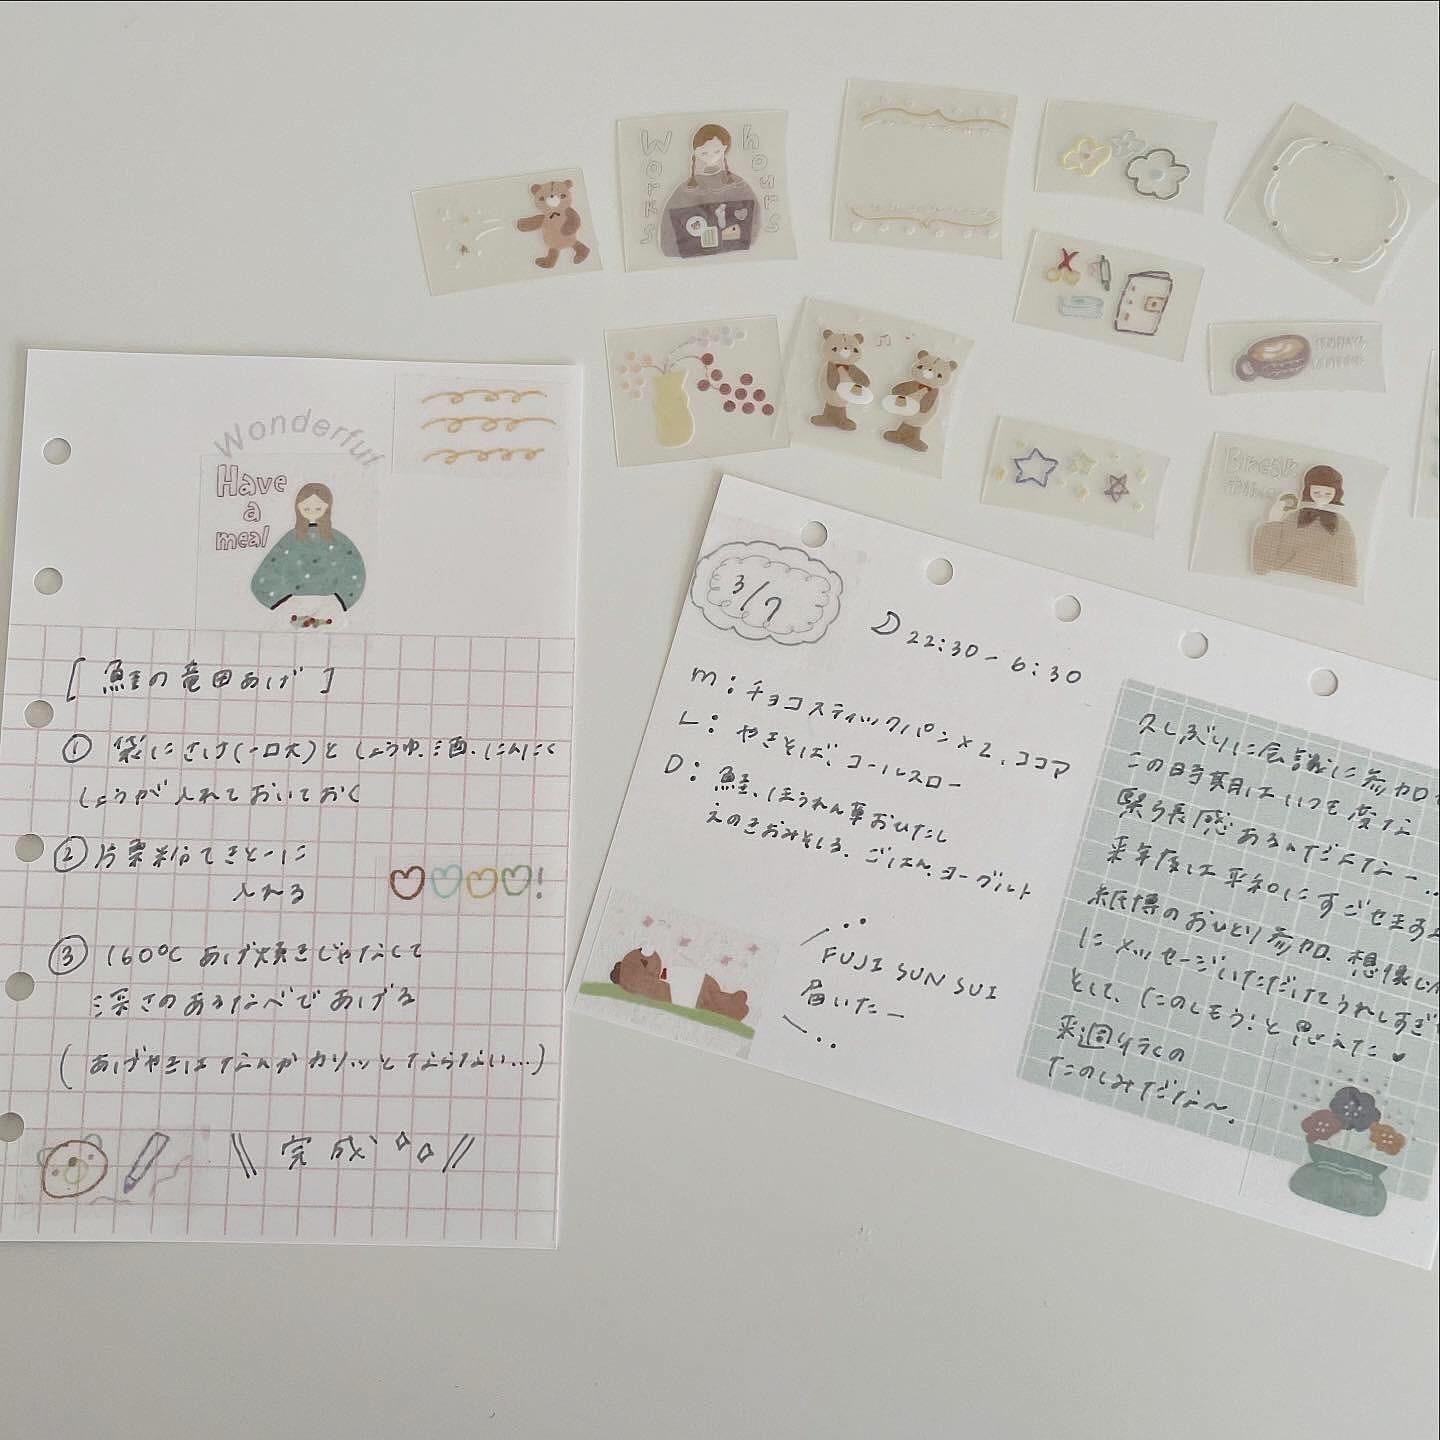 Works hours
Wonderful
Have
a
meal
[ 鮭の竜田あげ ]
① 袋にさけ(一口大)と しょうゆ、酒、にんにく
しょうが 入れておいておく
② 片栗粉てきとーに
入れる
!
③ 160℃ あげ焼きじゃなくて
深さのあるなべであげる
( あげやきはなんかカリッとならない…)
\\ 完成 //
Break
time
3/7
22:30 - 6:30
m : チョコスティックパン×2、ココア
L : やきそば、コールスロー
D : 鮭、ほうれん草おひたし
えのきおみそしる、ごはん、ヨーグルト
FUJI SUN SUI
届いたー
久しぶりに会議に参加
この時期はいつも変な
緊張感あるんだよなー…
来年度は平和にすごせます
紙博のおひとり参加、想像
にメッセージいただけてうれしすぎ
として、たのしもう!と思えた♥
来週行くの
たのしみだな〜。